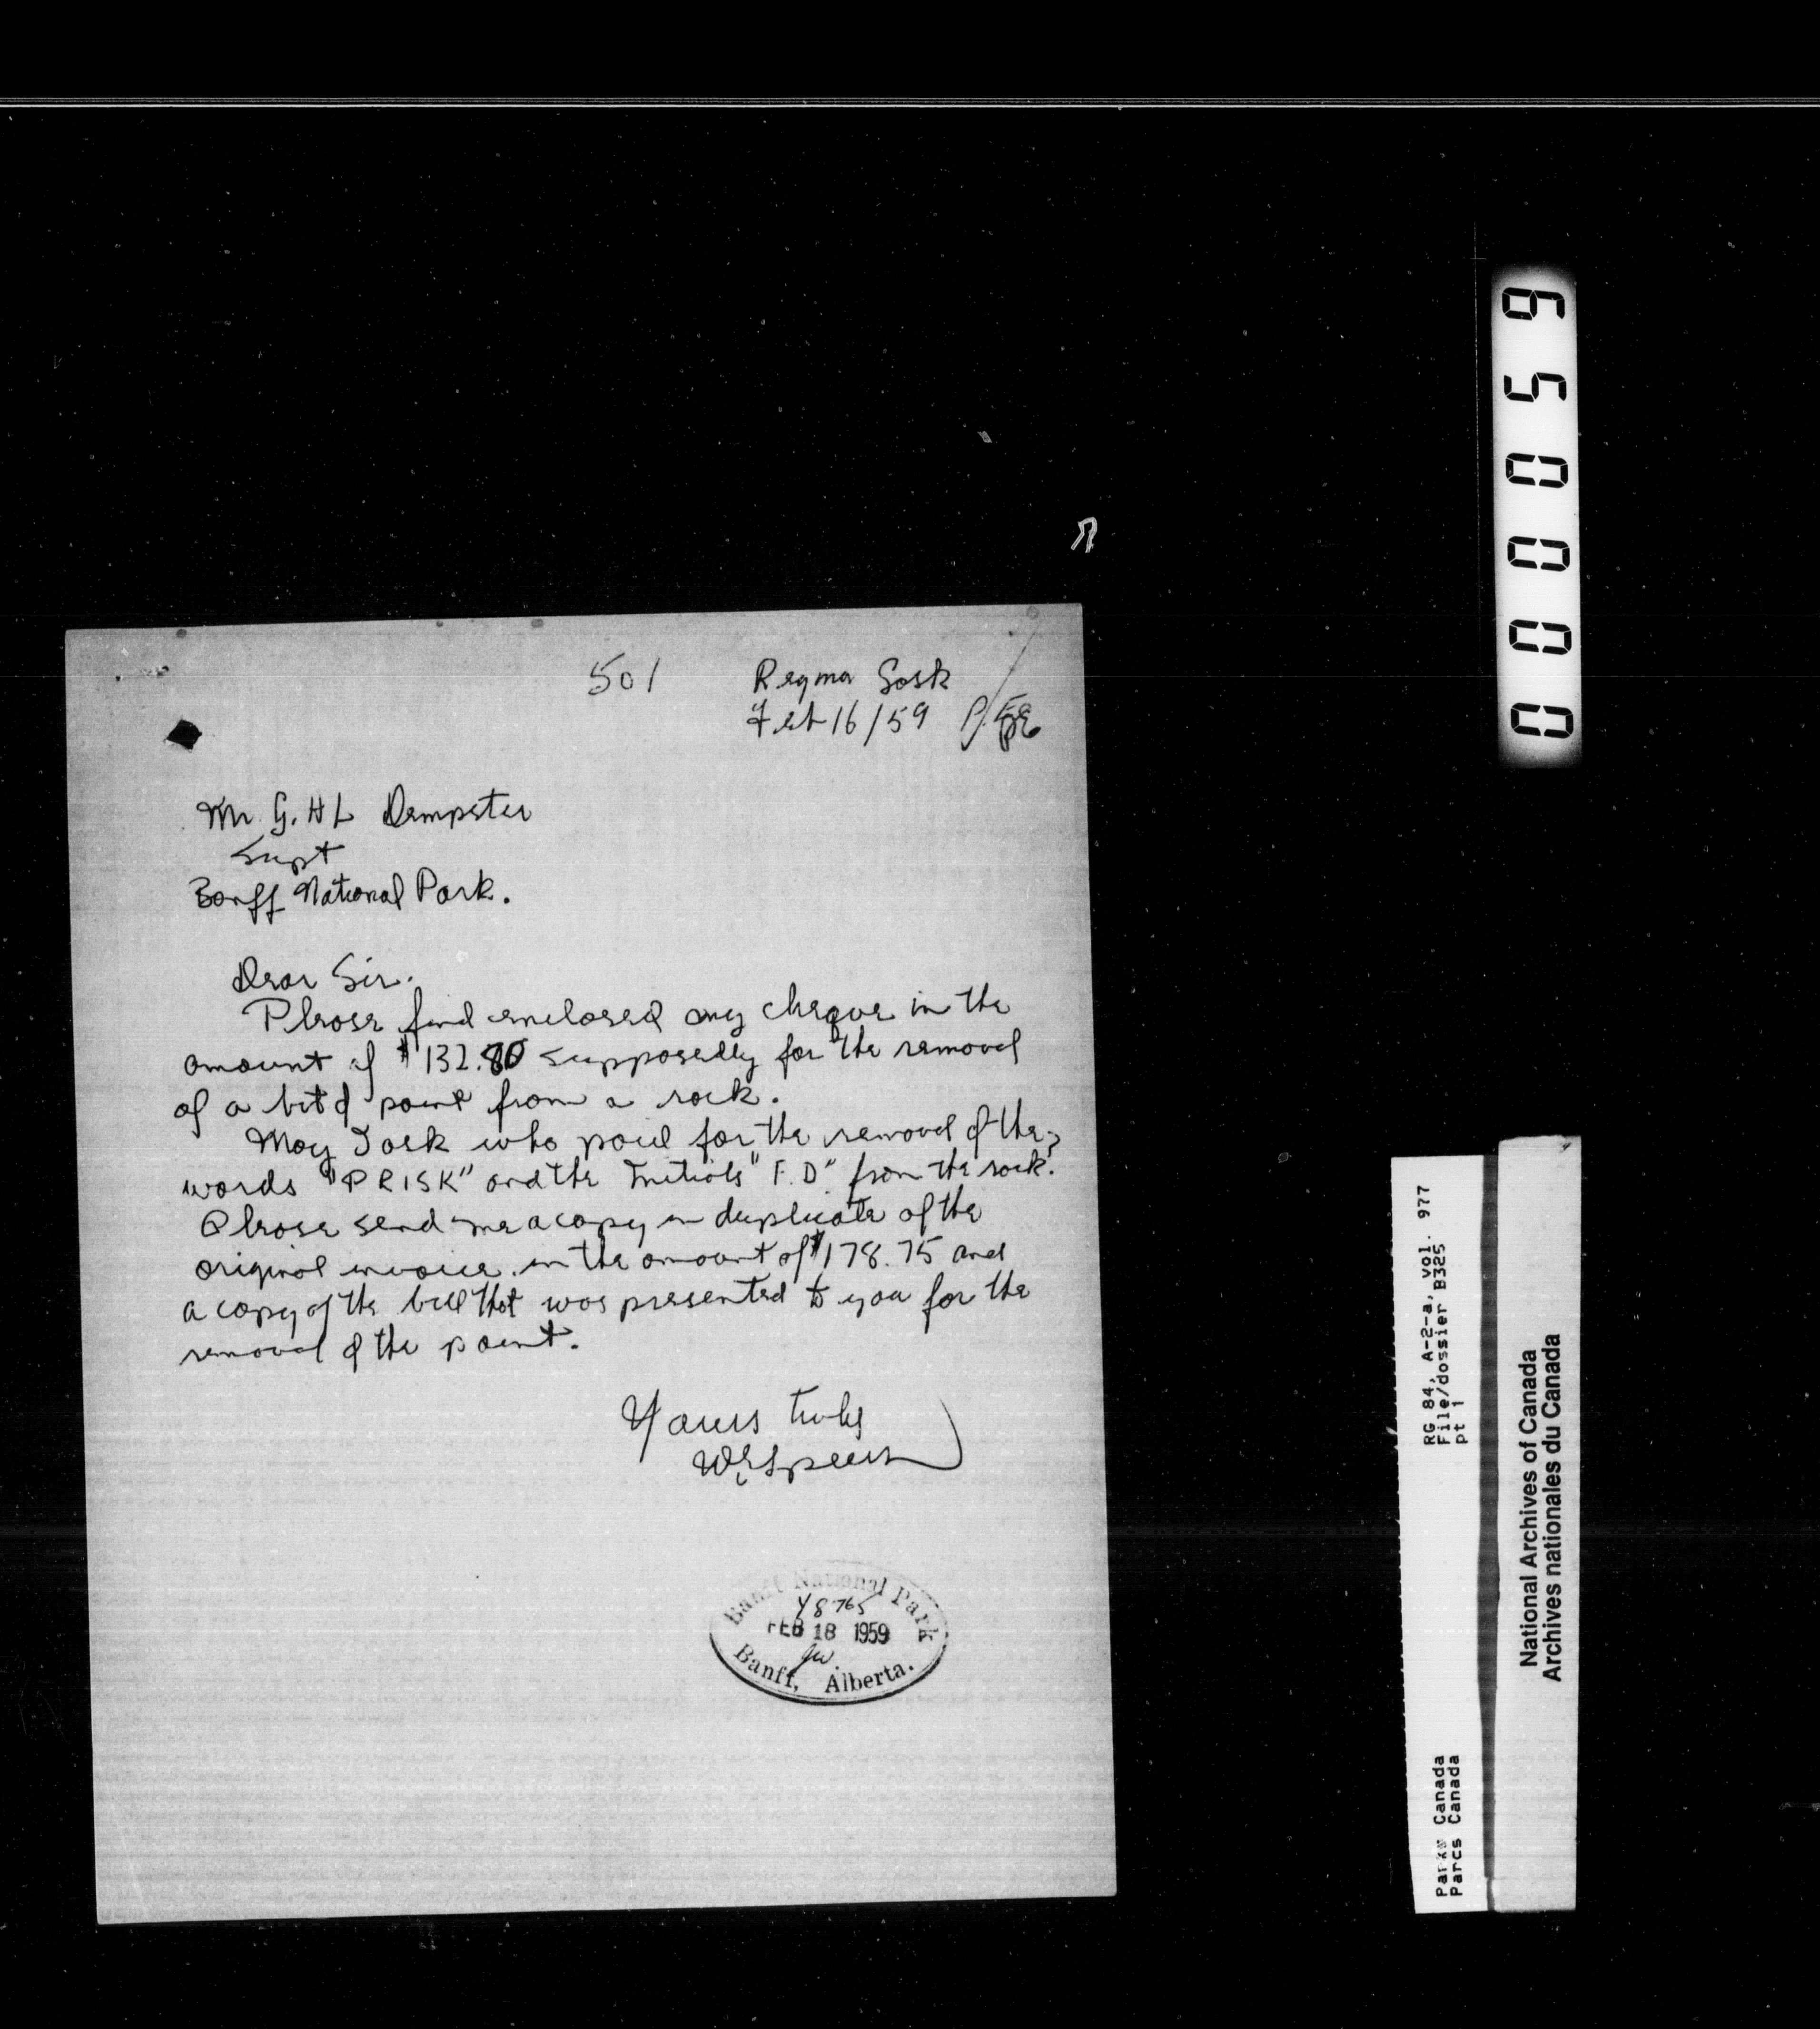 501
Regina Sask
Feb 16/59
Mr. G. H L Dempster
Supt
Banff National Park.
Dear Sir.
Please find enclosed my cheque in the
amount of $132.80 supposedly for the removal
of a bit of paint from a rock.
May I ask who paid for the removal of the
words "PRISK" and the Initials "F.D" from the rock?
Please send me a copy in duplicate of the
original invoice in the amount of $178.75 and
a copy of the bill that was presented to you for the
removal of the paint.
Yours truly
WE Speers
Banff National Park
Y8765
FEB 18 1959
Banff, Alberta.
000059
RG 84, A-2-a, vol. 977
File/dossier B325
pt 1
Parks Canada
Parcs Canada
National Archives of Canada
Archives nationales du Canada